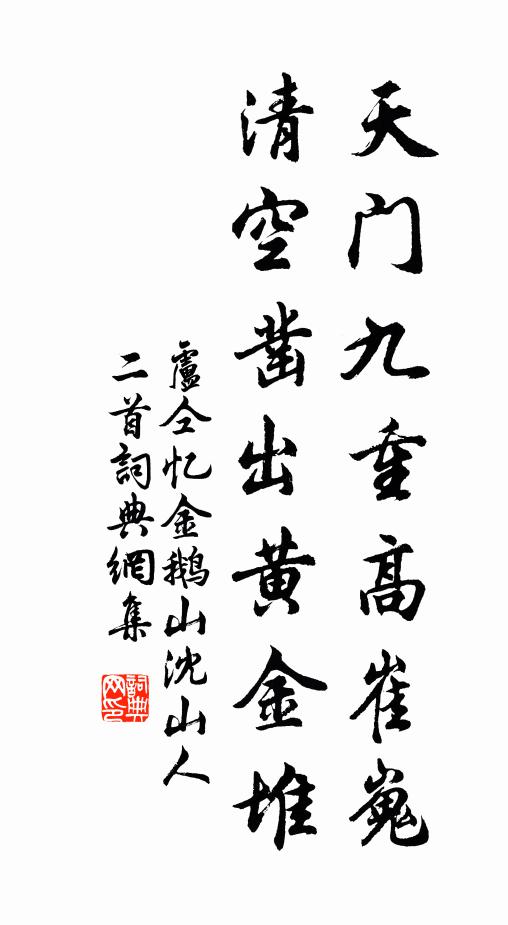 天门九重高崔嵬
清空凿出黄金堆
盧仝忆金鹅山沈山人
二首詞典網集
詞典
网印